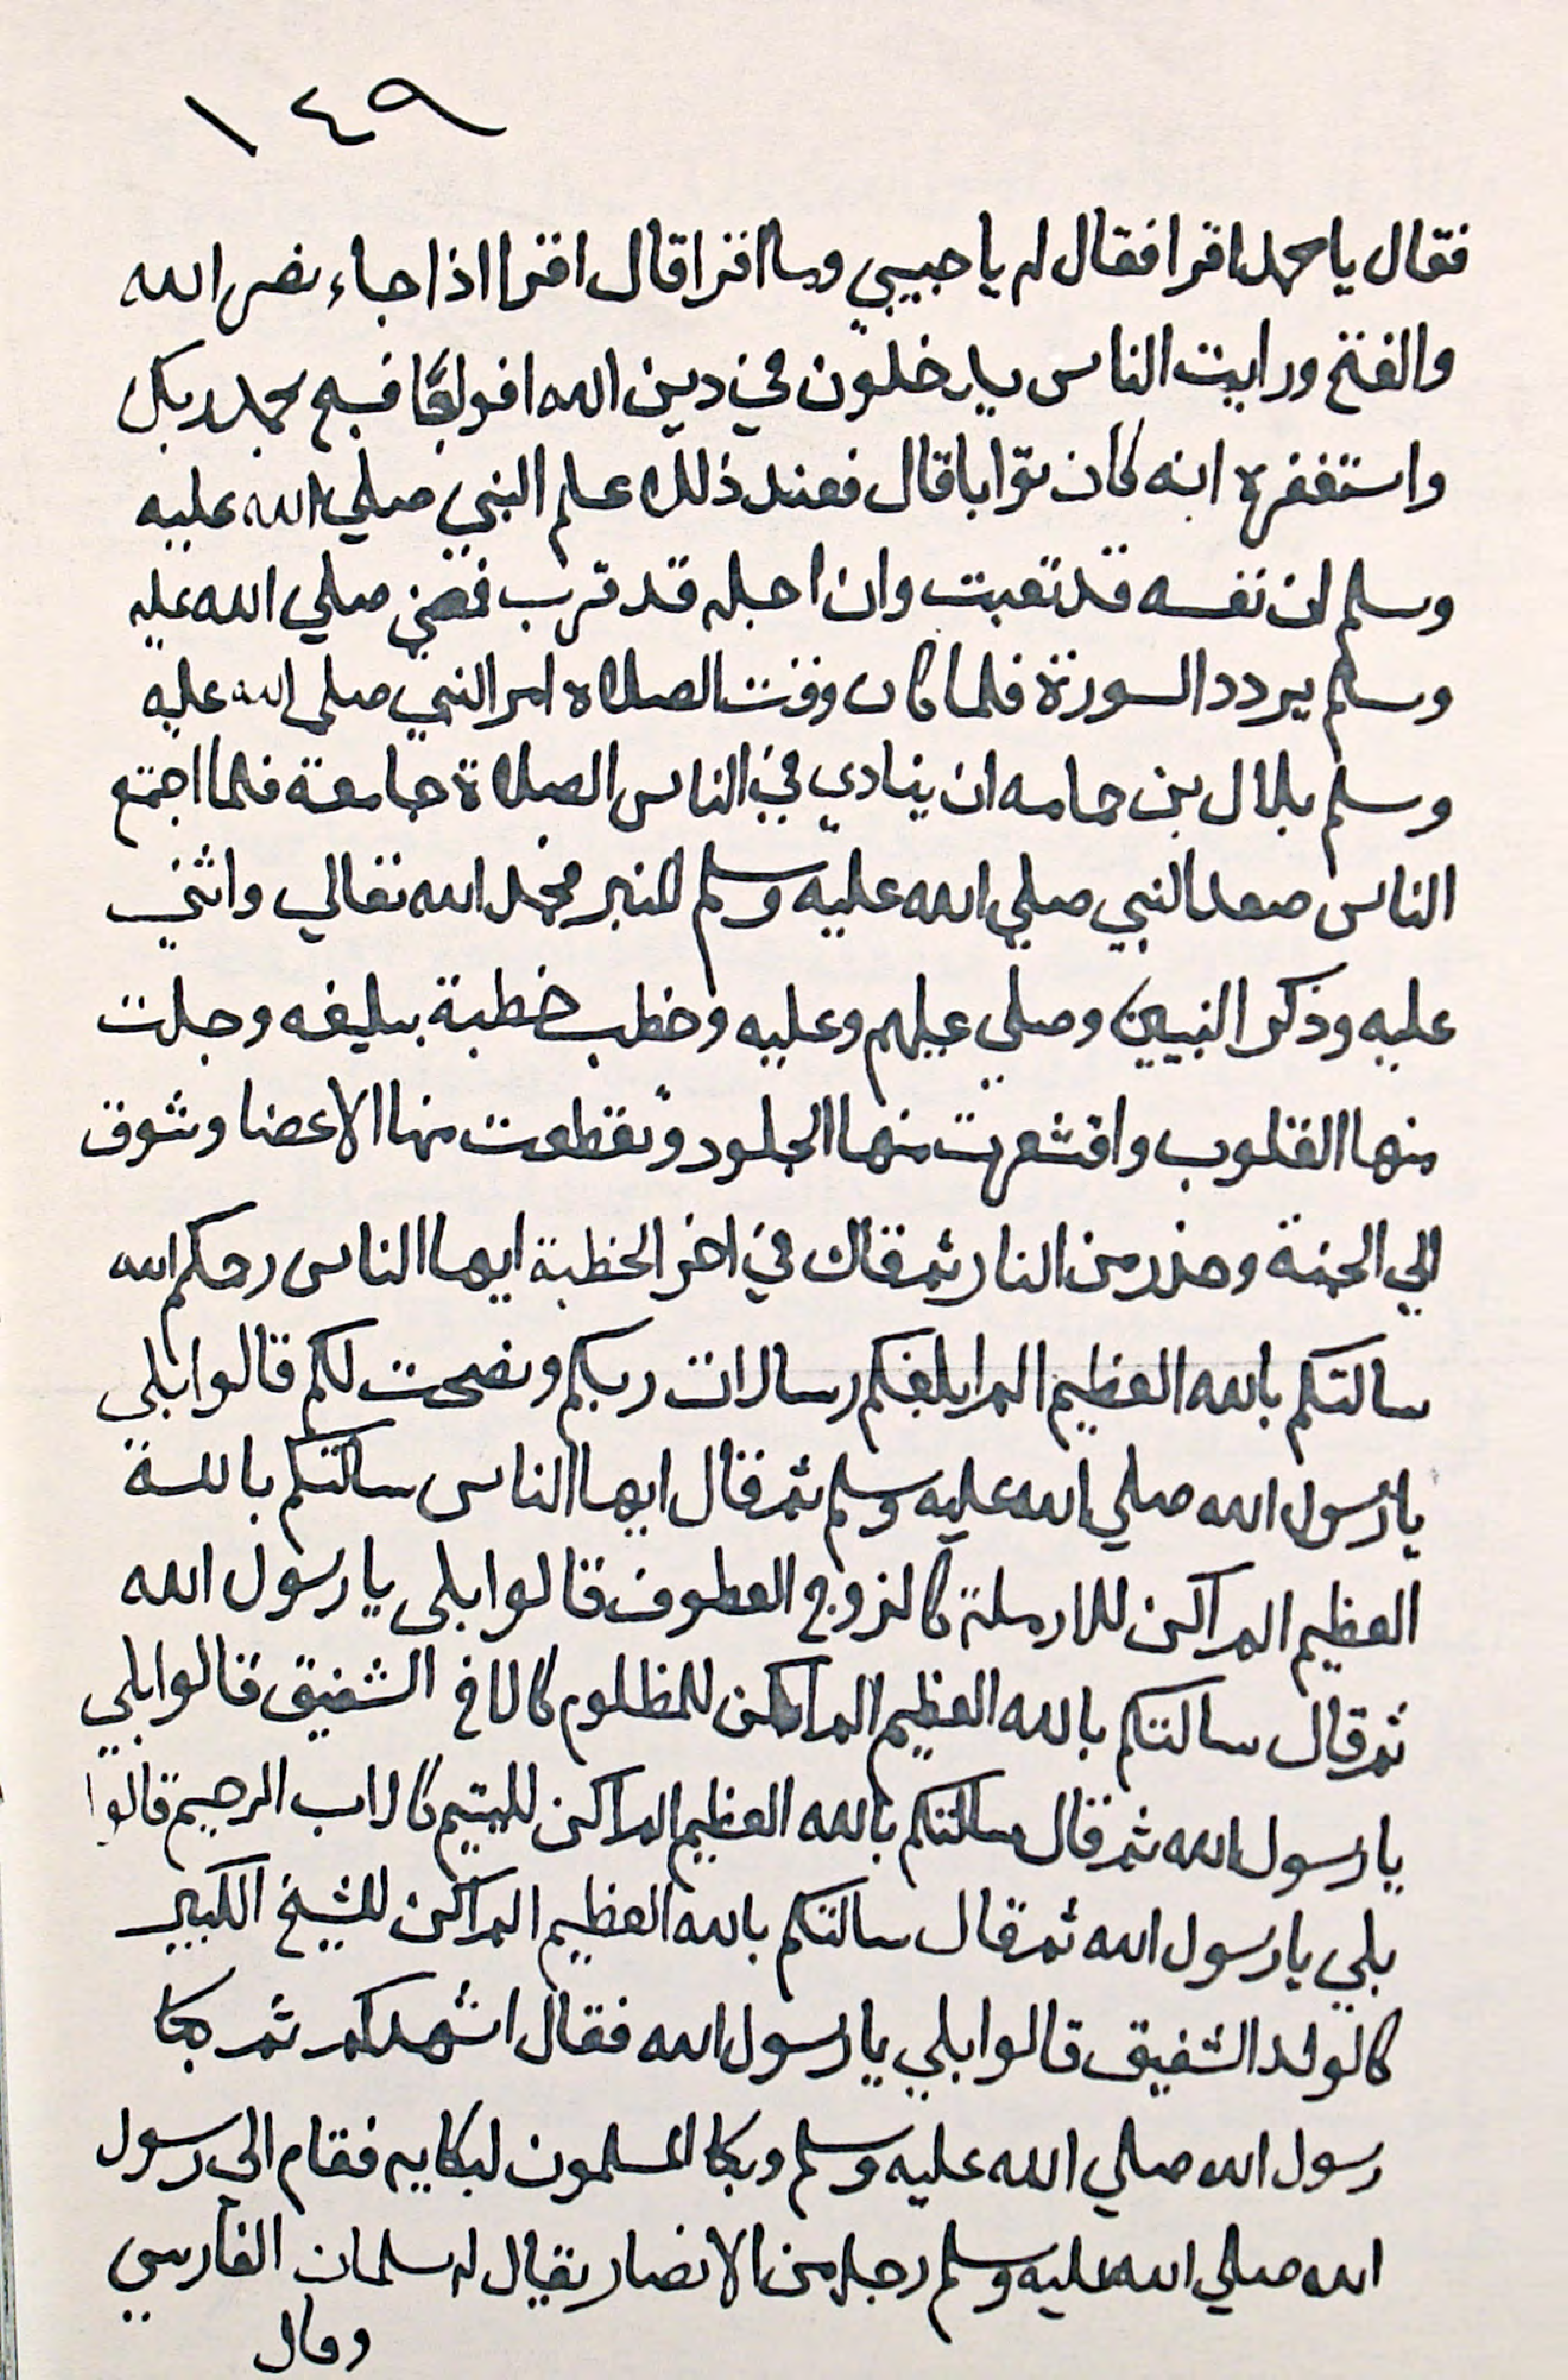 ١٤٩
فقال يا محمد اقرا فقال له يا حبيبي وما اقرا قال اقرا اذا جاء نصر الله
والفتح ورايت الناس يدخلون في دين الله افواجا فسبح بحمد ربك
واستغفره انه كان توابا قال فعند ذلك علم النبي صلي الله عليه
وسلم ان نفسه قد تعبت وان اجله قد قرب فمضي صلي الله عليه
وسلم يردد السورة فلما كان وقت الصلاة امر النبي صلى الله عليه
وسلم بلال بن حمامه ان ينادي في الناس الصلاة جامعة فلما اجتمع
الناس صعد النبي صلي الله عليه وسلم المنبر فحمد الله تعالي واثني
عليه وذكر النبيين وصلي عليهم وعليه وخطب خطبة بليغه وجلت
منها القلوب واقشعرت منها الجلود وتقطعت منها الاعضا وشوق
الي الجنة وحذر من النار ثم قال في اخر الخطبة ايها الناس رحمكم الله
سالتكم بالله العظيم الم ابلغكم رسالات ربكم ونصحت لكم قالوا بلي
يا رسول الله صلي الله عليه وسلم ثم قال ايها الناس سالتكم بالله
العظيم الم اكن للارملة كالزوج العطوف قالوا بلى يا رسول الله
ثم قال سالتكم بالله العظيم الم اكن للمظلوم كالاخ الشفيق قالوا بلي
يا رسول الله ثم قال سالتكم بالله العظيم الم اكن لليتيم كالاب الرحيم قالوا
بلي يا رسول الله ثم قال سالتكم بالله العظيم الم اكن للشيخ الكبير
كالولد الشفيق قالوا بلي يا رسول الله فقال اشهدكم ثم بكا
رسول الله صلي الله عليه وسلم وبكا المسلمون لبكايه فقام الي رسول
الله صلي الله عليه وسلم رجل من الانصار يقال له سلمان الفارسي
وقال